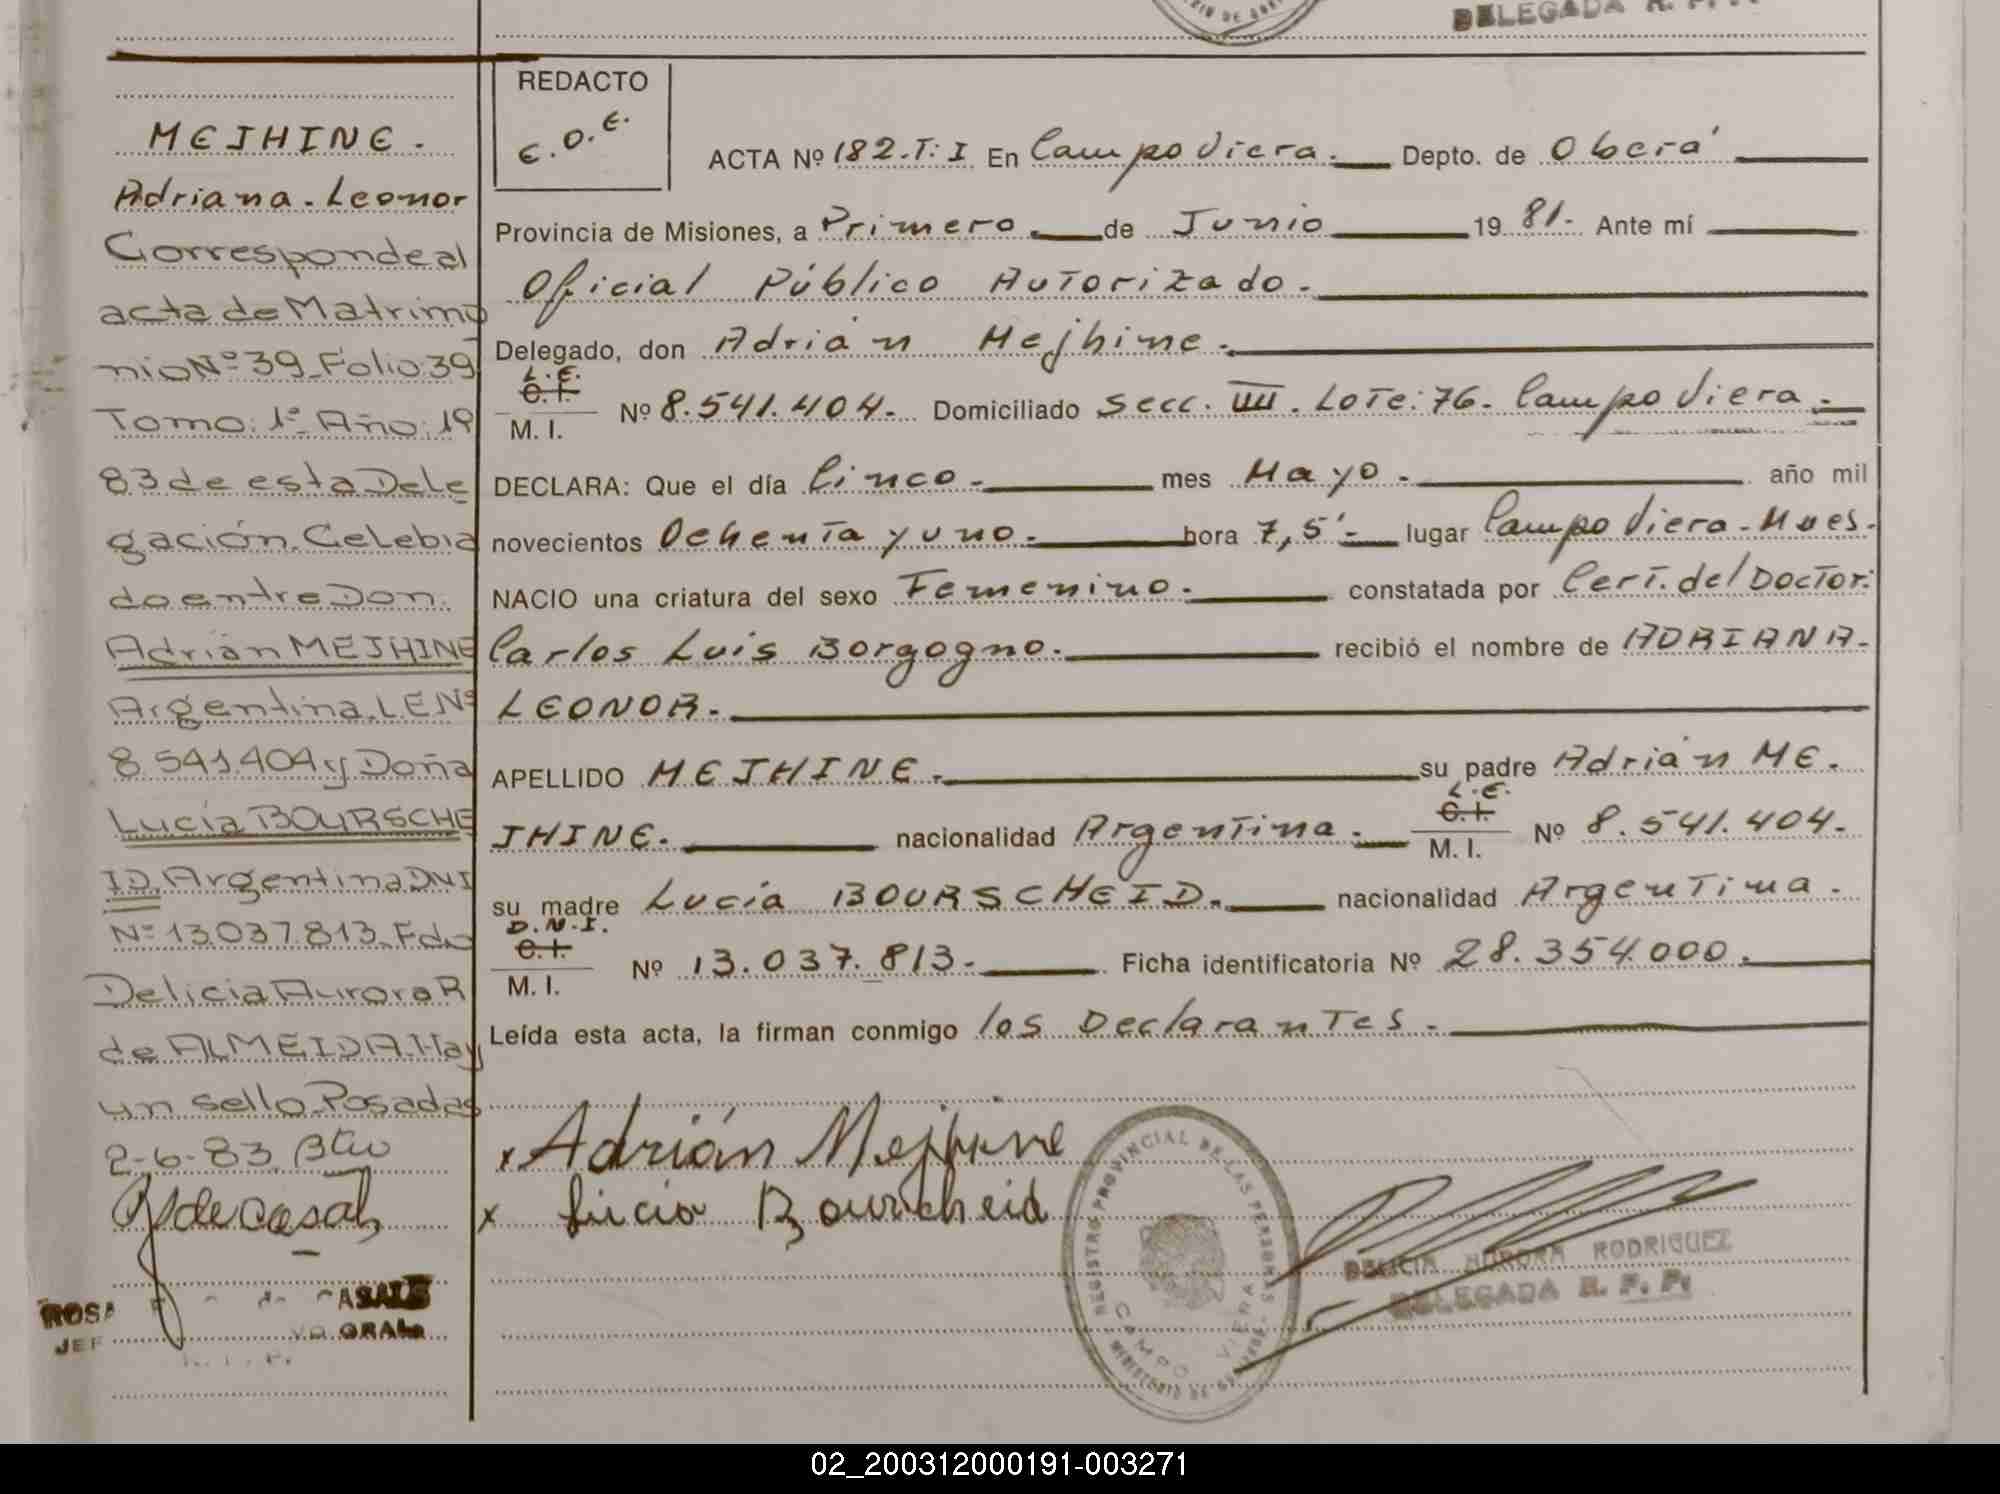 DELEGADA R. P. P.
MEJHINE.
Adriana. Leonor
Corresponde al
acta de Matrimo
nio Nº 39 Folio 39
Tomo: 1º Año: 19
83 de esta Dele
gación. Celebra
do entre Don.
Adrián MEJHINE
Argentina. L.E Nº
8.541.404 y Doña
Lucía BOURSCHE
ID. Argentina DNI
Nº 13.037.813. Fdo
Delicia Aurora R
de ALMEIDA. Hay
un sello. Posadas
2-6-83
REDACTO
E.O.E.
ACTA Nº 182.T:I En Campo Viera. Depto. de Oberá
Provincia de Misiones, a Primero. de Junio 19 81. Ante mí
Oficial Público Autorizado.
Delegado, don Adrián Mejhine.
L.E.
C.I.
M. I. Nº 8.541.404. Domiciliado Secc. VIII. Lote: 76. Campo Viera.
DECLARA: Que el día Cinco. mes Mayo. año mil
novecientos Ochenta y uno. hora 7,5'. lugar Campo Viera. Mnes.
NACIO una criatura del sexo Femenino. constatada por Cert. del Doctor:
Carlos Luis Borgogno. recibió el nombre de ADRIANA.
LEONOR.
APELLIDO MEJHINE. su padre Adrián ME.
JHINE. nacionalidad Argentina. L.E. C.I. M. I. Nº 8.541.404.
su madre Lucía BOURSCHEID. nacionalidad Argentina.
D.N.I.
C.I.
M. I. Nº 13.037.813. Ficha identificatoria Nº 28.354.000.
Leída esta acta, la firman conmigo los Declarantes.
x Adrián Mejhine
x Lucia Bourscheid
REGISTRO PROVINCIAL DE LAS PERSONAS
MINISTERIO DE GOBIERNO
CAMPO VIERA
DELICIA AURORA RODRIGUEZ
DELEGADA R. P. P.
ROSA de CASALS
JEF GRAL.
02_200312000191-003271